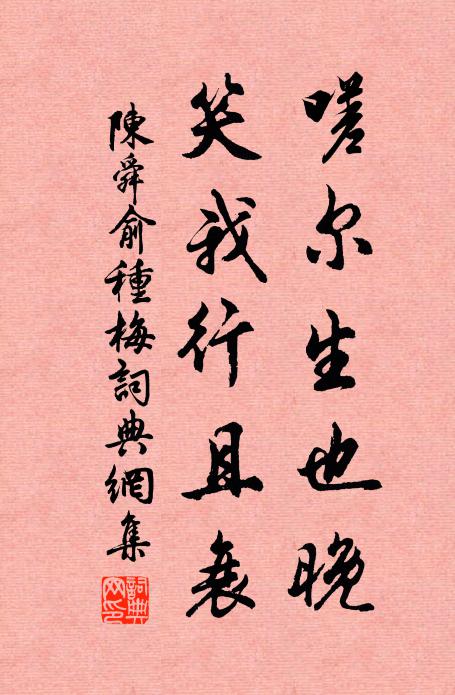 嗟尔生也晚
笑我行且衰
陳舜俞種梅詞典網集
詞典網印